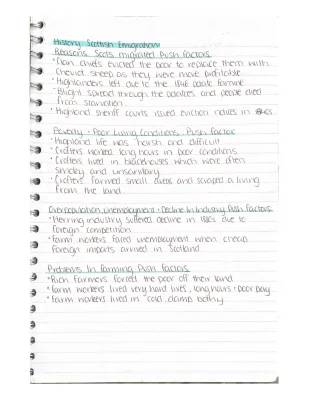 History Scottish Emigration
Reasons Scots migrated Push Factors
• Clan chiefs evicted the poor to replace them with
Cheviot sheep as they were more profitable
• Highlanders left due to the 1846 potato famine
• Blight spread through the potatoes and people died
from starvation.
• Highland sheriff courts issued eviction notices in
Poverty - Poor Living Conditions, Push Factor
• Highland life was harsh and difficult
• Crofters worked long hours in poor conditions.
• Crofters lived in blackhouses which were often
Smokey and unsanitary.
• Crofters farmed small areas and scraped a living
from the land.
Overpopulation, unemployment - Decline In Industry, Push Factors
• Herring industry suffered decline in 1880s due to
foreign competition
• Farm workers faced unemployment when cheap
foreign imports arrived in Scotland
Problems In Farming, Push Factors
• Rich Farmers forced the poor off their land
• Farm workers lived very hard lives, long hours + poor pay.
• Farm workers lived in cold, damp bothy